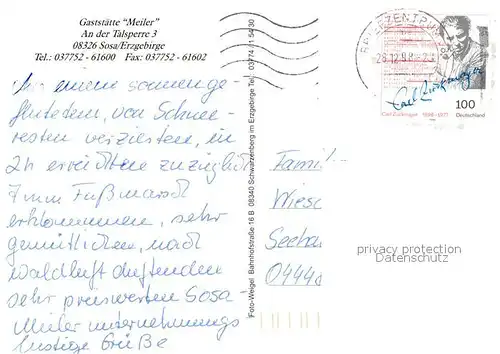 Gaststätte "Meiler"
An der Talsperre 3
08326 Sosa/Erzgebirge
Tel.: 037752 - 61600 Fax: 037752 - 61602
In einem sonnenge-
von Schnee-
resten verzierten, in
2h erreichten zuzüglich
7mm Fußmarsch
erklommenen, sehr
gemütlichen, nach
Waldluft duftenden
sehr preiswerten Sosa-
Meiler unternehmungs
lustige Grüße
Foto-Weigel Bahnhofstraße 16 B 08340 Schwarzenberg im Erzgebirge Tel. 03774 / 1 54 30
BRIEFZENTRUM
28.12.98-23
Carl Zuckmayer
Carl Zuckmayer 1896-1977
100
Deutschland
Famil
Wiesc
Seeha
04448
privacy protection
Datenschutz